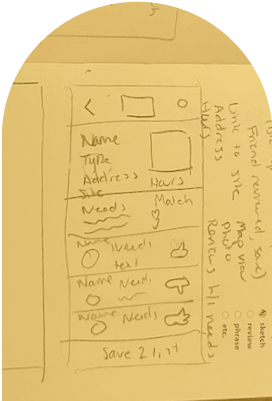 Name
Type
Address
Site
Hours
Needs
Match
Name
Needs
text
Name Need
Name Needs
Save 2 list
Friend reviewed save)
Link to site
Address
Hours
Map view
photo
Reviews w/ needs
sketch
review
phrase
etc.